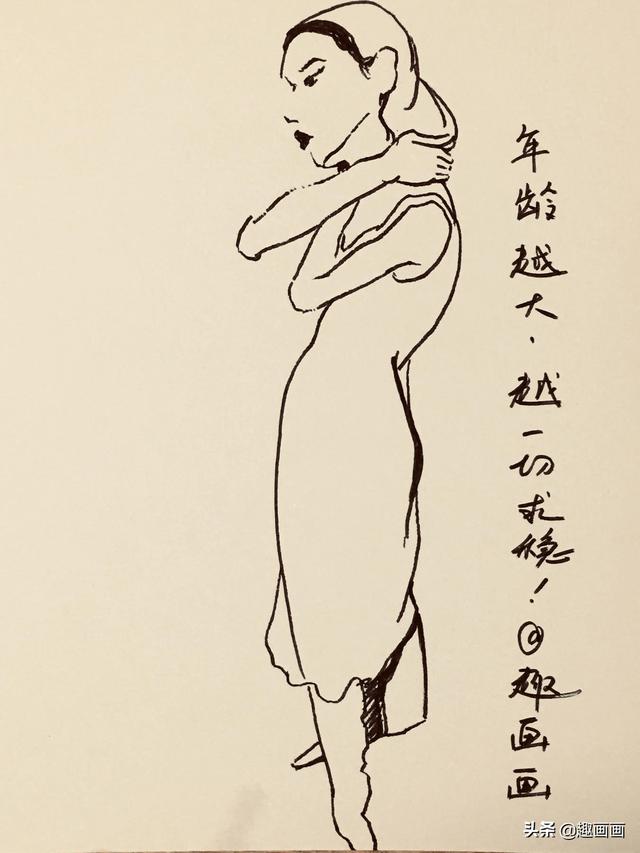 年龄越大、越一切求稳！@趣画画
头条 @趣画画